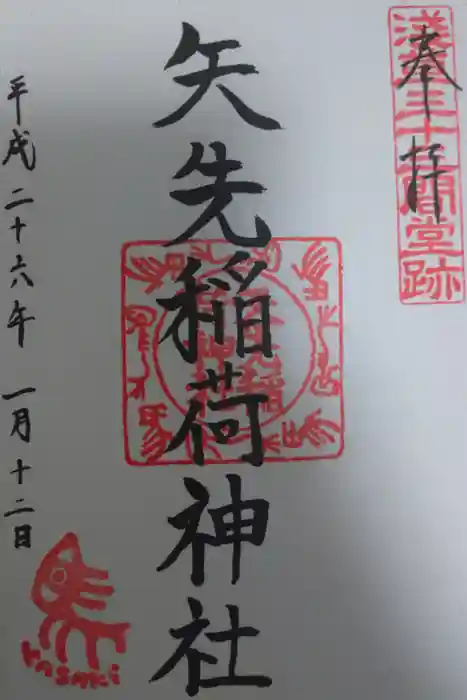 奉拝
浅草三十三間堂跡
矢先稲荷神社
平成二十六年 一月十二日
YASAKI